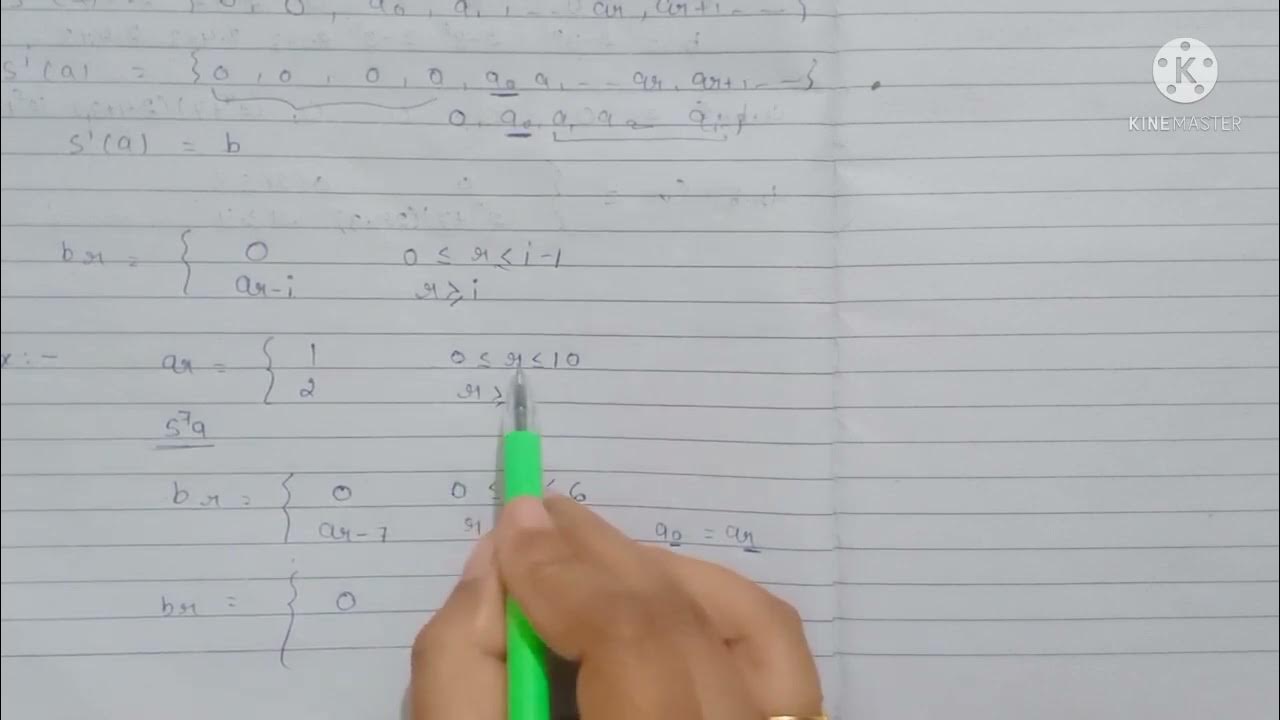 0, a0, a1, ... ar, ar+1, ... }
s^i(a) = { 0, 0, 0, 0, a0 a1 ... ar, ar+1, ... }
0, a0, a1 a2
s^i(a) = b
br = { 0 0 ≤ r ≤ i-1
ar-i r ≥ i
x :- ar = { 1 0 ≤ r ≤ 10
2 r ≥
s^7a
br = { 0 0 ≤ 6
ar-7 r a0 = ar
br = { 0
K
KINEMASTER